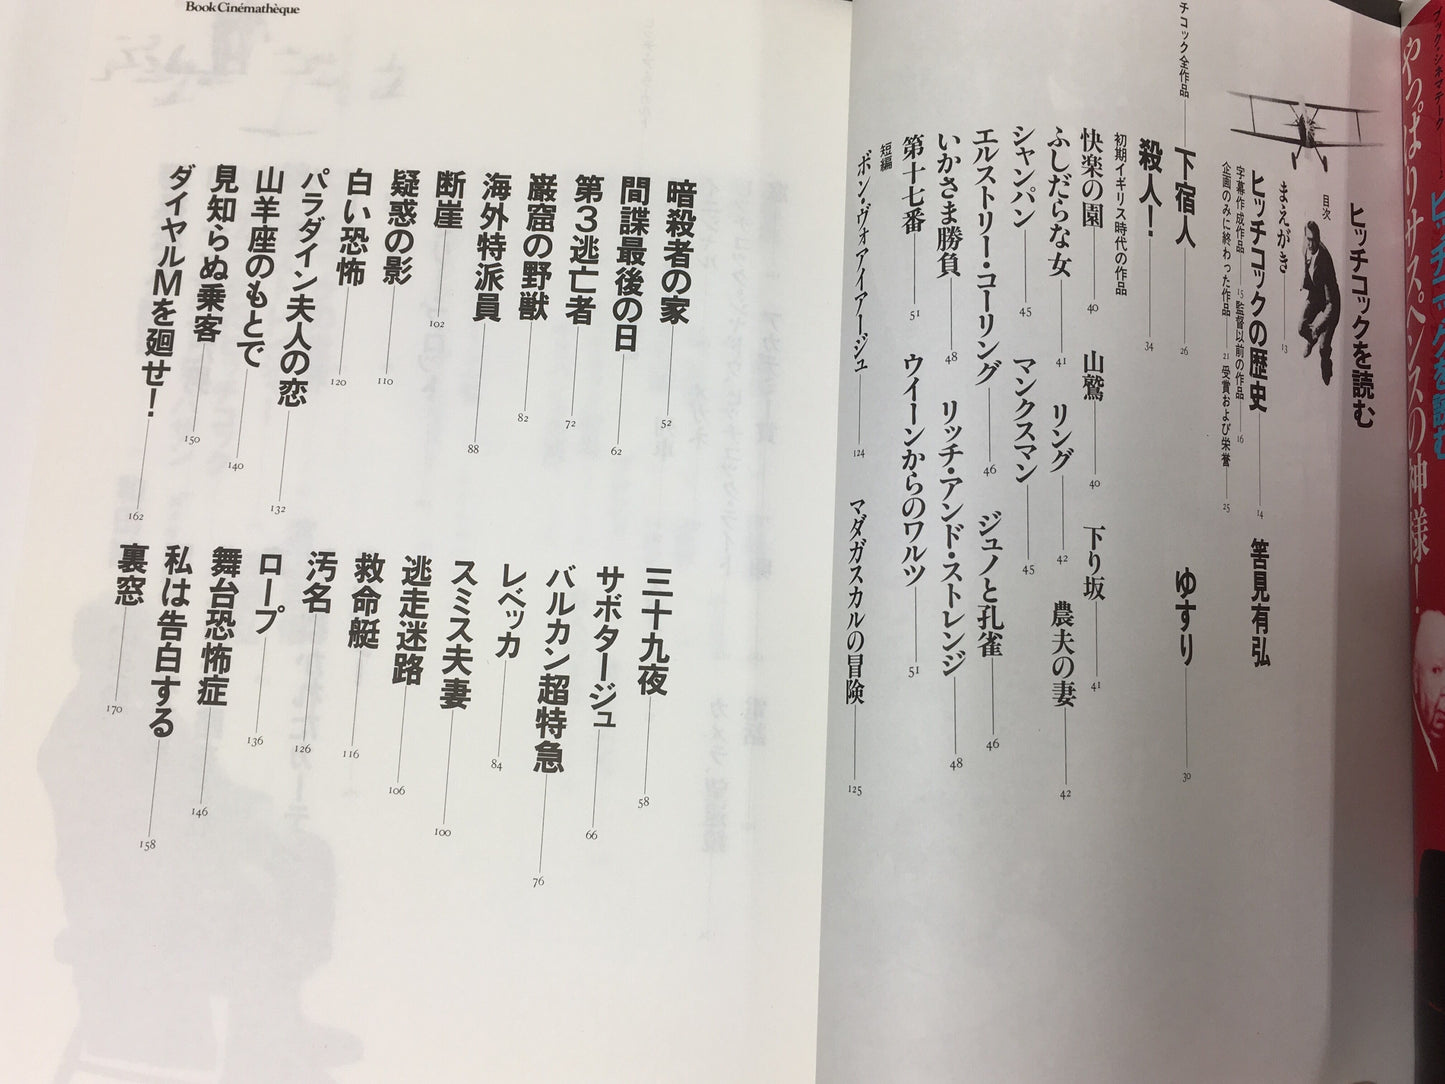 ブック・シネマテーク
ヒッチコックを読む
やっぱりサスペンスの神様!
ヒッチコックを読む
目次
まえがき 13
ヒッチコックの歴史 14 筈見有弘
字幕作成作品 15 監督以前の作品 16
企画のみに終わった作品 21 受賞および栄誉 25
チコック全作品
下宿人 26 ゆすり 30
殺人! 34
初期イギリス時代の作品
快楽の園 40 山鷲 40 下り坂 41
ふしだらな女 41 リング 42 農夫の妻 42
シャンパン 45 マンクスマン 45
エルストリー・コーリング 46 ジュノと孔雀 46
いかさま勝負 48 リッチ・アンド・ストレンジ 48
第十七番 51 ウイーンからのワルツ 51
短編
ボン・ヴォアイアージュ 124 マダガスカルの冒険 125
Book Cinémathèque
暗殺者の家 52 三十九夜 58
間諜最後の日 62 サボタージュ 66
第3逃亡者 72 バルカン超特急 76
巖窟の野獣 82 レベッカ 84
海外特派員 88 スミス夫妻 100
断崖 102 逃走迷路 106
疑惑の影 110 救命艇 116
白い恐怖 120 汚名 126
パラダイン夫人の恋 132 ロープ 136
山羊座のもとで 140 舞台恐怖症 146
見知らぬ乗客 150 私は告白する 158
ダイヤルMを廻せ! 162 裏窓 170